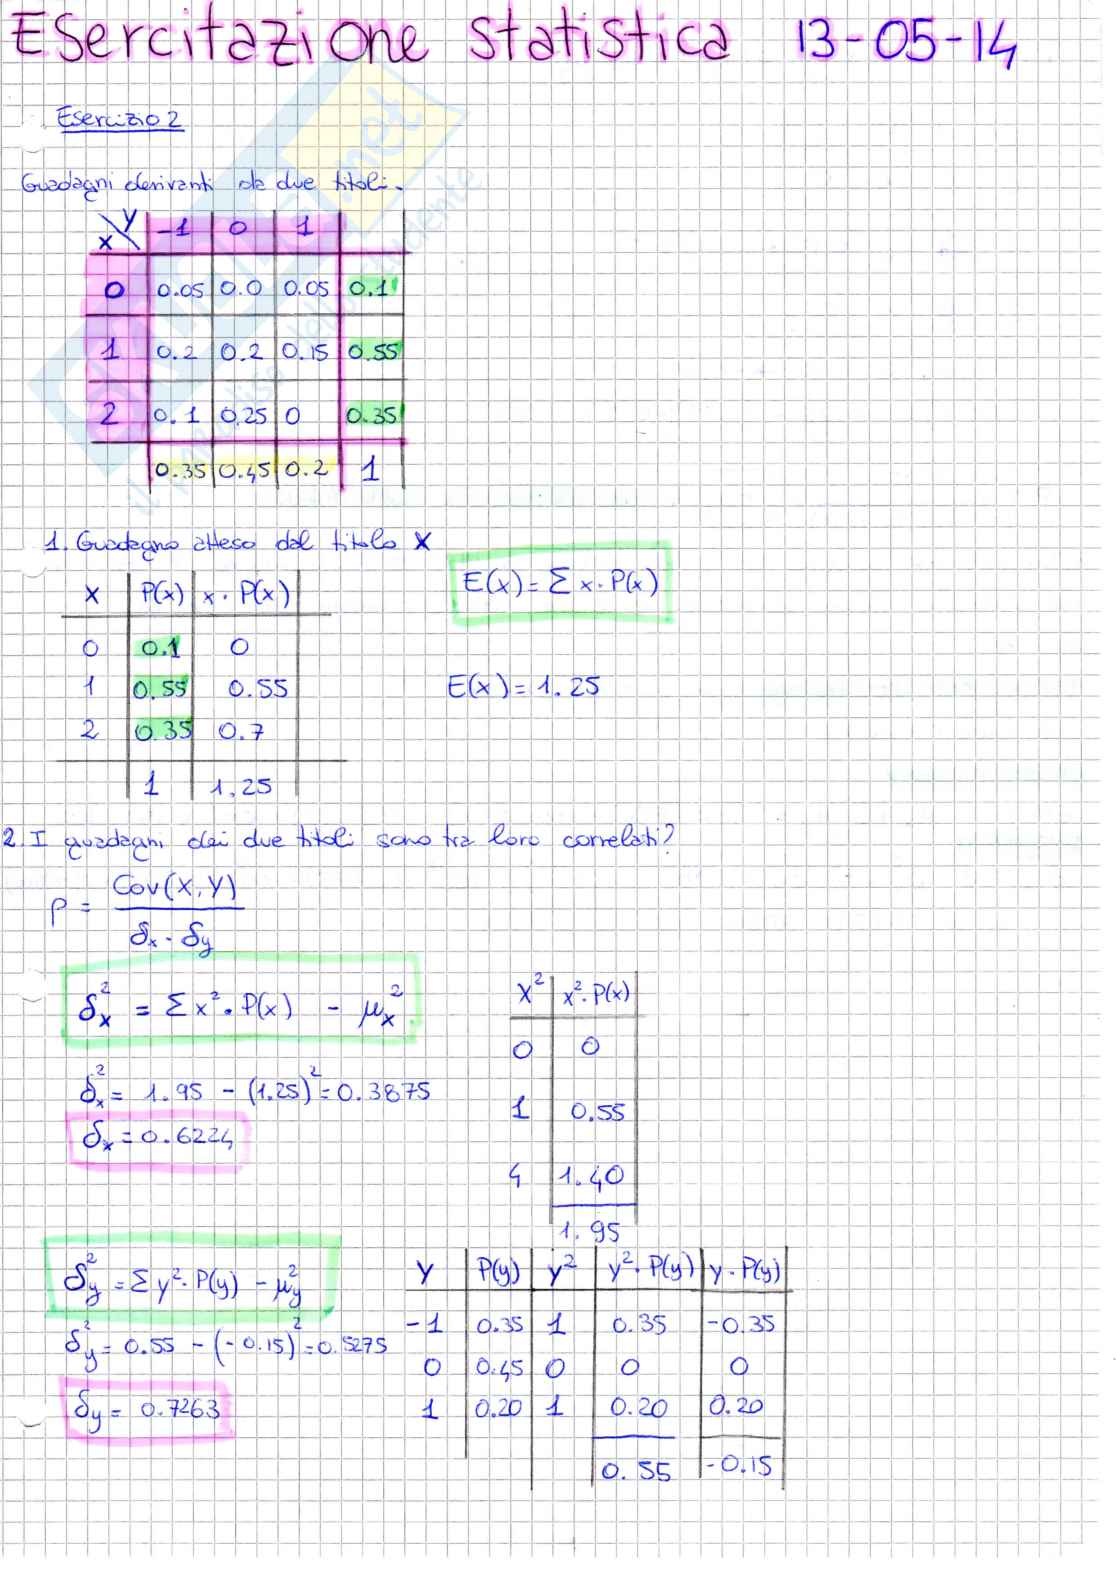 Esercitazione statistica 13-05-14
Esercizio 2
Guadagni derivanti da due titoli.
X Y -1 0 1
0 0.05 0.0 0.05 0.1
1 0.2 0.2 0.15 0.55
2 0.1 0.25 0 0.35
0.35 0.45 0.2 1
1. Guadagno atteso dal titolo X
E(x) = Σ x · P(x)
X P(x) x · P(x)
0 0.1 0
1 0.55 0.55
2 0.35 0.7
1 1.25
E(x) = 1.25
2. I guadagni dei due titoli sono tra loro correlati?
ρ = Cov(X,Y) / δx · δy
δx² = Σ x² · P(x) - μx²
δx² = 1.95 - (1.25)² = 0.3875
δx = 0.6224
X² x² · P(x)
0 0
1 0.55
4 1.40
1.95
δy² = Σ y² · P(y) - μy²
δy² = 0.55 - (-0.15)² = 0.5275
δy = 0.7263
Y P(y) y² y² · P(y) y · P(y)
-1 0.35 1 0.35 -0.35
0 0.45 0 0 0
1 0.20 1 0.20 0.20
0.55 -0.15